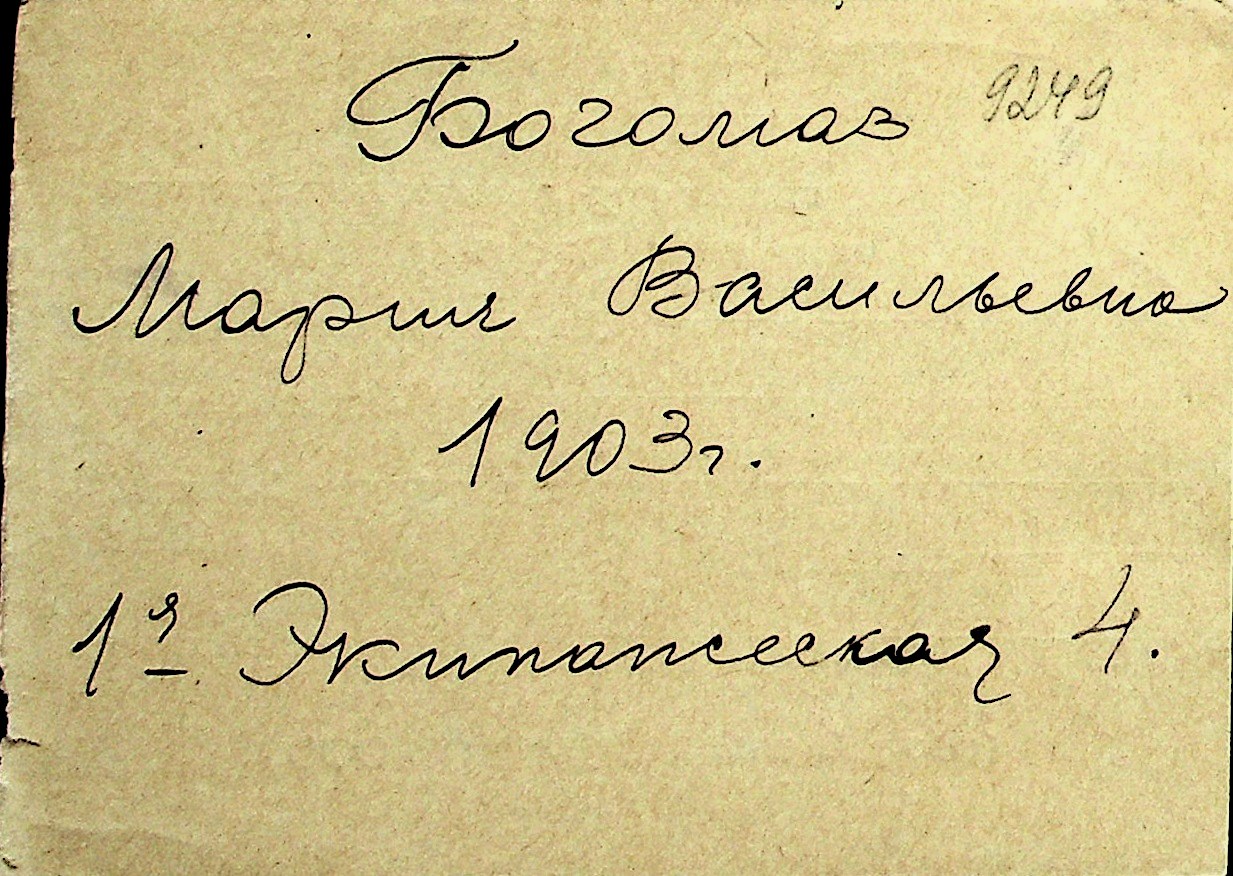 Богомаз 9249
Мария Васильевна
1903 г.
1я Экипажеская 4.